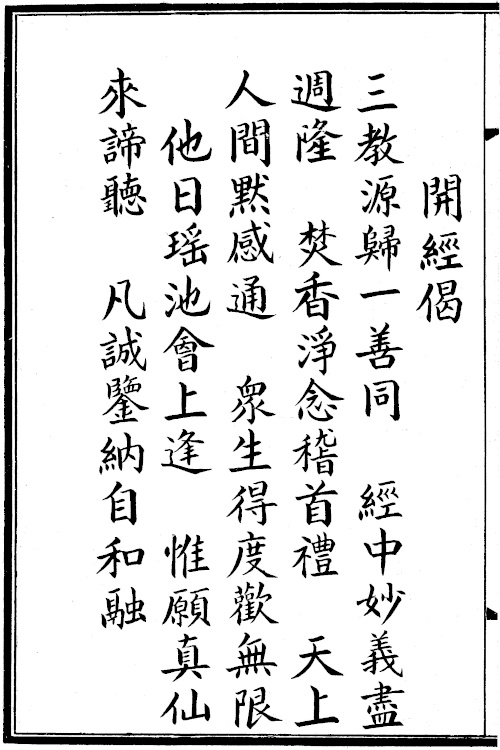 開經偈
三教源歸一善同　經中妙義盡
週隆　焚香淨念稽首禮　天上
人間默感通　眾生得度歡無限
他日瑶池會上逢　惟願真仙
來諦聽　凡誠鑒納自和融